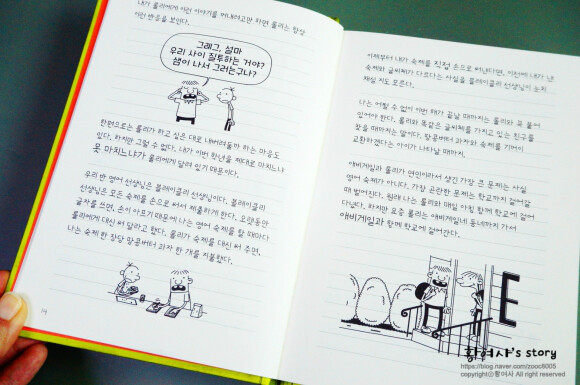 내가 롤리에게 이런 이야기를 꺼내려고만 하면 롤리는 항상
이런 반응을 보인다.
그레그, 설마
우리 사이 질투하는 거야?
샘이 나서 그러는구나?
한편으로는 롤리가 하고 싶은 대로 내버려둘까 하는 마음도
있다. 하지만 그럴 수 없다. 내가 이번 학년을 제대로 마치느냐
못 마치느냐가 롤리에게 달려 있기 때문이다.
우리 반 영어 선생님은 블레이클리 선생님이다. 블레이클리
선생님은 모든 숙제를 손으로 써서 제출하게 한다. 오랫동안
글자를 쓰면, 손이 아프기 때문에 나는 영어 숙제를 할 때마다
롤리에게 대신 써 달라고 한다. 롤리가 숙제를 대신 써 주면,
나는 숙제 한 장당 땅콩버터 과자 한 개를 지불한다.
14
이제부터 내가 숙제를 직접 손으로 써낸다면, 이전에 내가 낸
숙제와 글씨체가 다르다는 사실을 블레이클리 선생님이 눈치
채실 지도 모른다.
나는 어쩔 수 없이 이번 해가 끝날 때까지는 롤리와 꼭 붙어
있어야 한다. 롤리와 똑같은 글씨체를 가지고 있는 친구를
찾을 때까지는 말이다. 땅콩버터 과자와 숙제를 기꺼이
교환하겠다는 아이가 나타날 때까지.
애비게일과 롤리가 연인이라서 생긴 가장 큰 문제는 사실
영어 숙제가 아니다. 가장 곤란한 문제는 학교까지 걸어갈
때 벌어진다. 원래 나는 롤리와 매일 아침 함께 학교에 걸어
다녔다. 하지만 요즘 롤리는 애비게일네 동네까지 가서
애비게일과 함께 학교에 걸어간다.
E
황여사's story
https://blog.naver.com/zooc8005
copyrightⓒ황여사 All right reserved